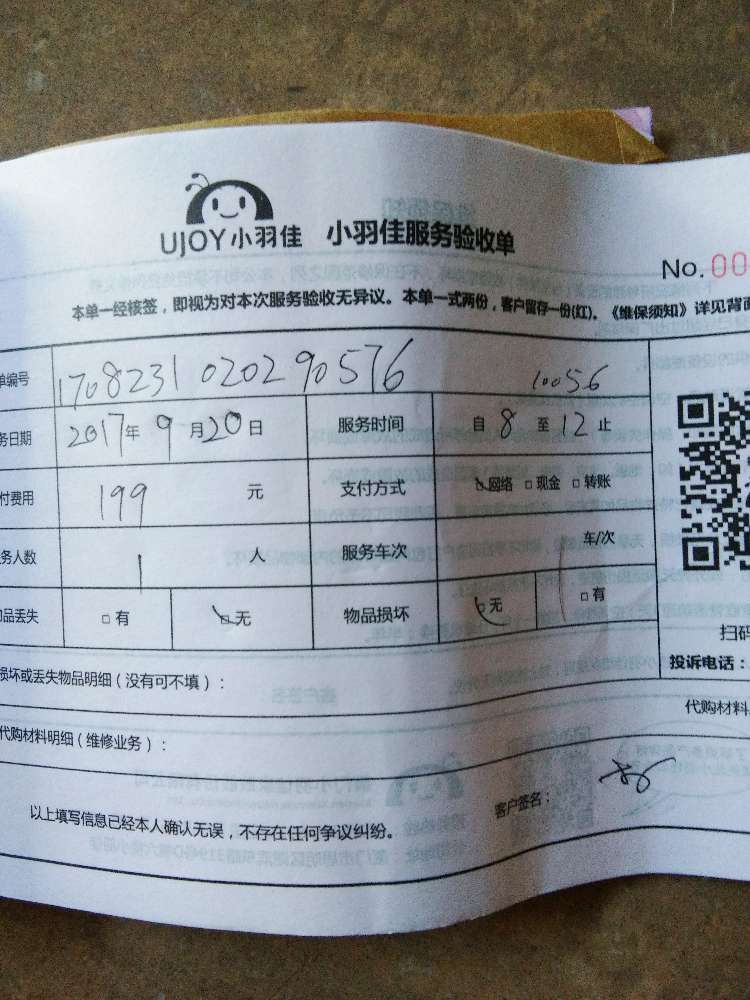 UJOY小羽佳 小羽佳服务验收单
No.00
本单一经核签，即视为对本次服务验收无异议。本单一式两份，客户留存一份(红)。《维保须知》详见背面
单编号 170823102029 0576 10056
务日期 2017年 9月20日 服务时间 自 8 至 12 止
付费用 199 元 支付方式 □网络 □现金 □转账
务人数 1 人 服务车次 1 车/次
品丢失 □有 □无 物品损坏 □无 □有
扫码
投诉电话：
损坏或丢失物品明细（没有可不填）：
代购材料
代购材料明细（维修业务）：
以上填写信息已经本人确认无误，不存在任何争议纠纷。 客户签名：